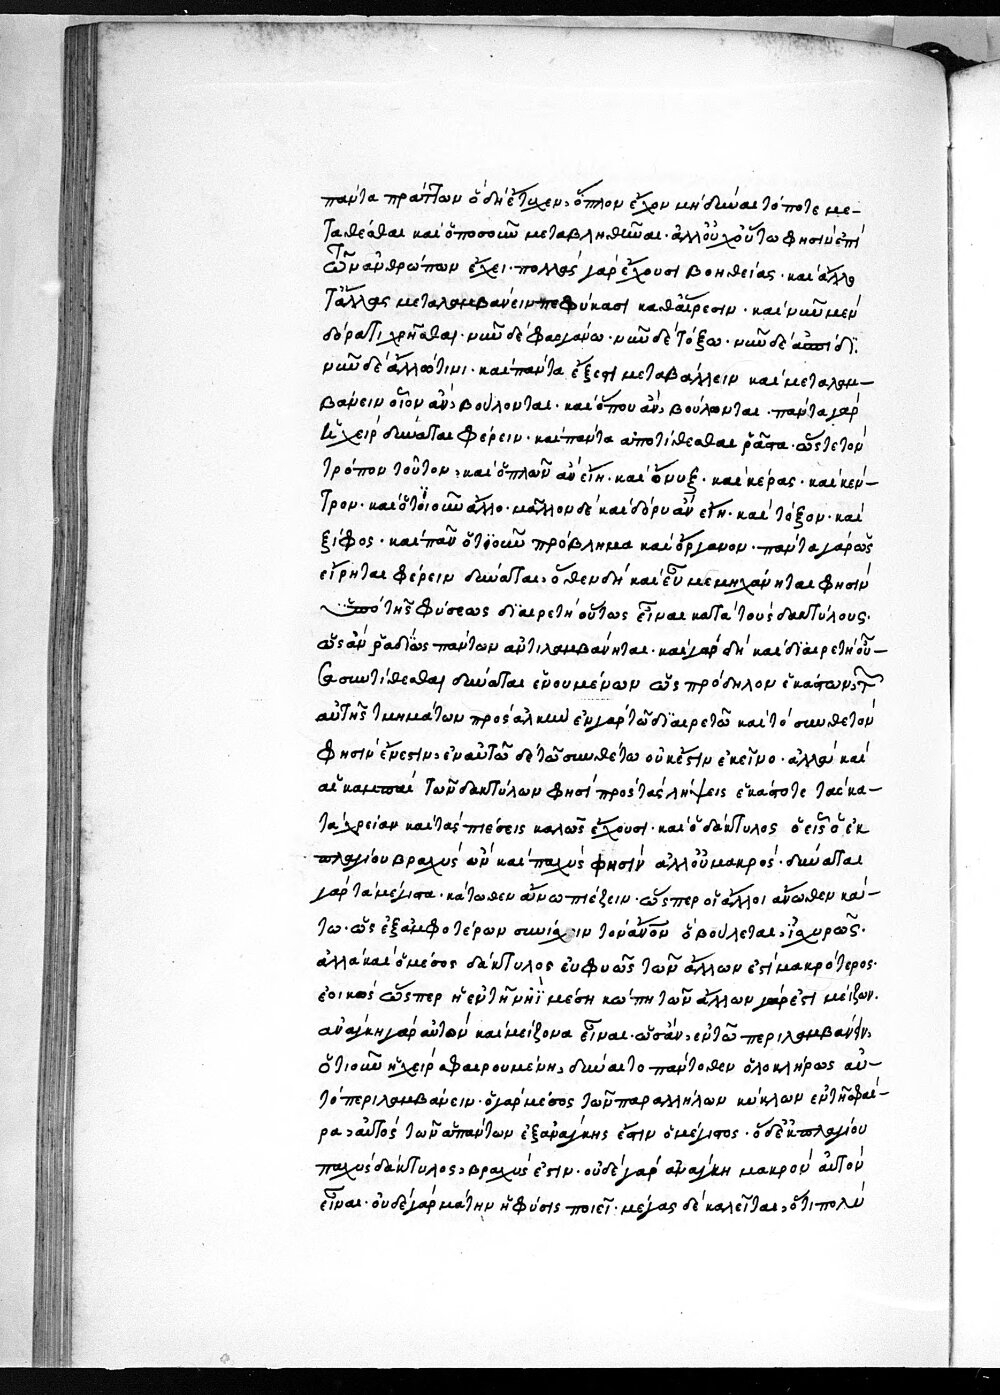 πάντα πράττων ὃ δὴ ἔτυχεν, ὅπλον ἔχον μὴ δύναιτό ποτε με-
ταθέσθαι καὶ ὁποσοῦν μεταβληθῆναι. ἀλλ' οὐχ οὕτω φησὶν ἐπὶ
τῶν ἀνθρώπων ἔχει. πολλὰς γὰρ ἔχουσι βοηθείας. καὶ ἄλλο
τ' ἄλλως μεταλαμβάνειν πεφύκασι καθ' αἵρεσιν. καὶ νῦν μὲν
δόρατι χρῆσθαι. νῦν δὲ φασγάνω. νῦν δὲ τόξω. νῦν δὲ ἀσπίδϊ.
νῦν δὲ ἄλλω τινι. καὶ πάντα ἔξεστι μεταβάλλειν καὶ μεταλαμ-
βάνειν οἷον ἂν βούλονται. καὶ ὅπου ἂν βούλωνται. πάντα γὰρ
ἡ χεὶρ δύναται φέρειν. καὶ πάντα ἀποτίθεσθαι ῥᾶστα. ὥστε τὸν
τρόπον τοῦτον, καὶ ὁπλὴ ἂν εἴη. καὶ ὄνυξ. καὶ κέρας. καὶ κέν-
τρον. καὶ ὅτϊοιοῦν ἄλλο. μᾶλλον δὲ καὶ δόρυ ἂν εἴη. καὶ τόξον. καὶ
ξίφος. καὶ πᾶν ὁτϊοῦν πρόβλημα καὶ ὄργανον. πάντα γὰρ ὡς
εἴρηται φέρειν δύναται, ὅθεν δὴ καὶ εὖ μεμηχάνηται φησὶν
ὑπὸ τῆς φύσεως διαιρετὴ οὕτως εἶναι κατὰ τοὺς δακτύλους.
ὡς ἂν ῥαδίως πάντων ἀντιλαμβάνηται. καὶ γὰρ δὴ καὶ διαιρετὴ οὖ-
σα συντίθεσθαι δύναται ἑνουμένων ὡς πρόδηλον ἑκάστων τ
αὐτῆς τμημάτων πρὸς ἀλκὴν ἐν γὰρ τῶ διαιρετῶ καὶ τὸ συνθετὸν
φησὶν ἔνεστιν, ἐν αὐτῶ δὲ τῶ συνθέτω οὐκ ἔστιν ἐκεῖνο. ἀλλὰ καὶ
αἱ καμπαὶ τῶν δακτύλων φησὶ πρὸς τὰς λήψεις ἑκάστοτε τὰς κα-
τὰ χρείαν καὶ τὰς πιέσεις καλῶς ἔχουσι. καὶ ὁ δάκτυλος ὁ εἷς ὁ ἐκ
πλαγίου βραχὺς ὢν καὶ παχὺς φησὶν ἀλλ' οὐ μακρὸς. δύναται
γὰρ τὰ μέγιστα. κάτωθεν ἄνω πιέζειν. ὥσπερ οἱ ἄλλοι ἄνωθεν κά-
τω. ὡς ἐξ ἀμφοτέρων συνάγειν τὸν ἄνθρωπον ὃ βούλεται, ἰσχυρῶς.
ἀλλὰ καὶ ὁ μέσος δάκτυλος εὐφυῶς τῶν ἄλλων ἐστὶ μακρότερος.
ἐοικὼς ὥσπερ ἡ ἐν τῆ νηῒ μέση κώπη τῶν ἄλλων γάρ ἐστι μείζων.
ἀνάγκη γὰρ αὐτὸν καὶ μείζονα εἶναι. ὡς ἂν, ἐν τῶ περιλαμβάνειν,
ὁτιοῦν ἡ χεὶρ σφαιρουμένη, δύναιτο πάντοθεν ὁλοκλήρως αὐ-
τὸ περιλαμβάνειν. ὁ γὰρ μέσος τῶν παραλλήλων κύκλων ἐν τῆ σφαί-
ρα, αὐτὸς τῶν ἁπάντων ἐξανάγκης ἔστιν ὁ μέγιστος. ὁ δ' ἐκ πλαγίου
παχὺς δάκτυλος, βραχύς ἐστιν. οὐδὲ γὰρ ἀνάγκη μακρὸν αὐτὸν
εἶναι. οὐδὲ γὰρ μάτην ἡ φύσις ποιεῖ. μέγας δὲ καλεῖται, ὅτι πολὺ